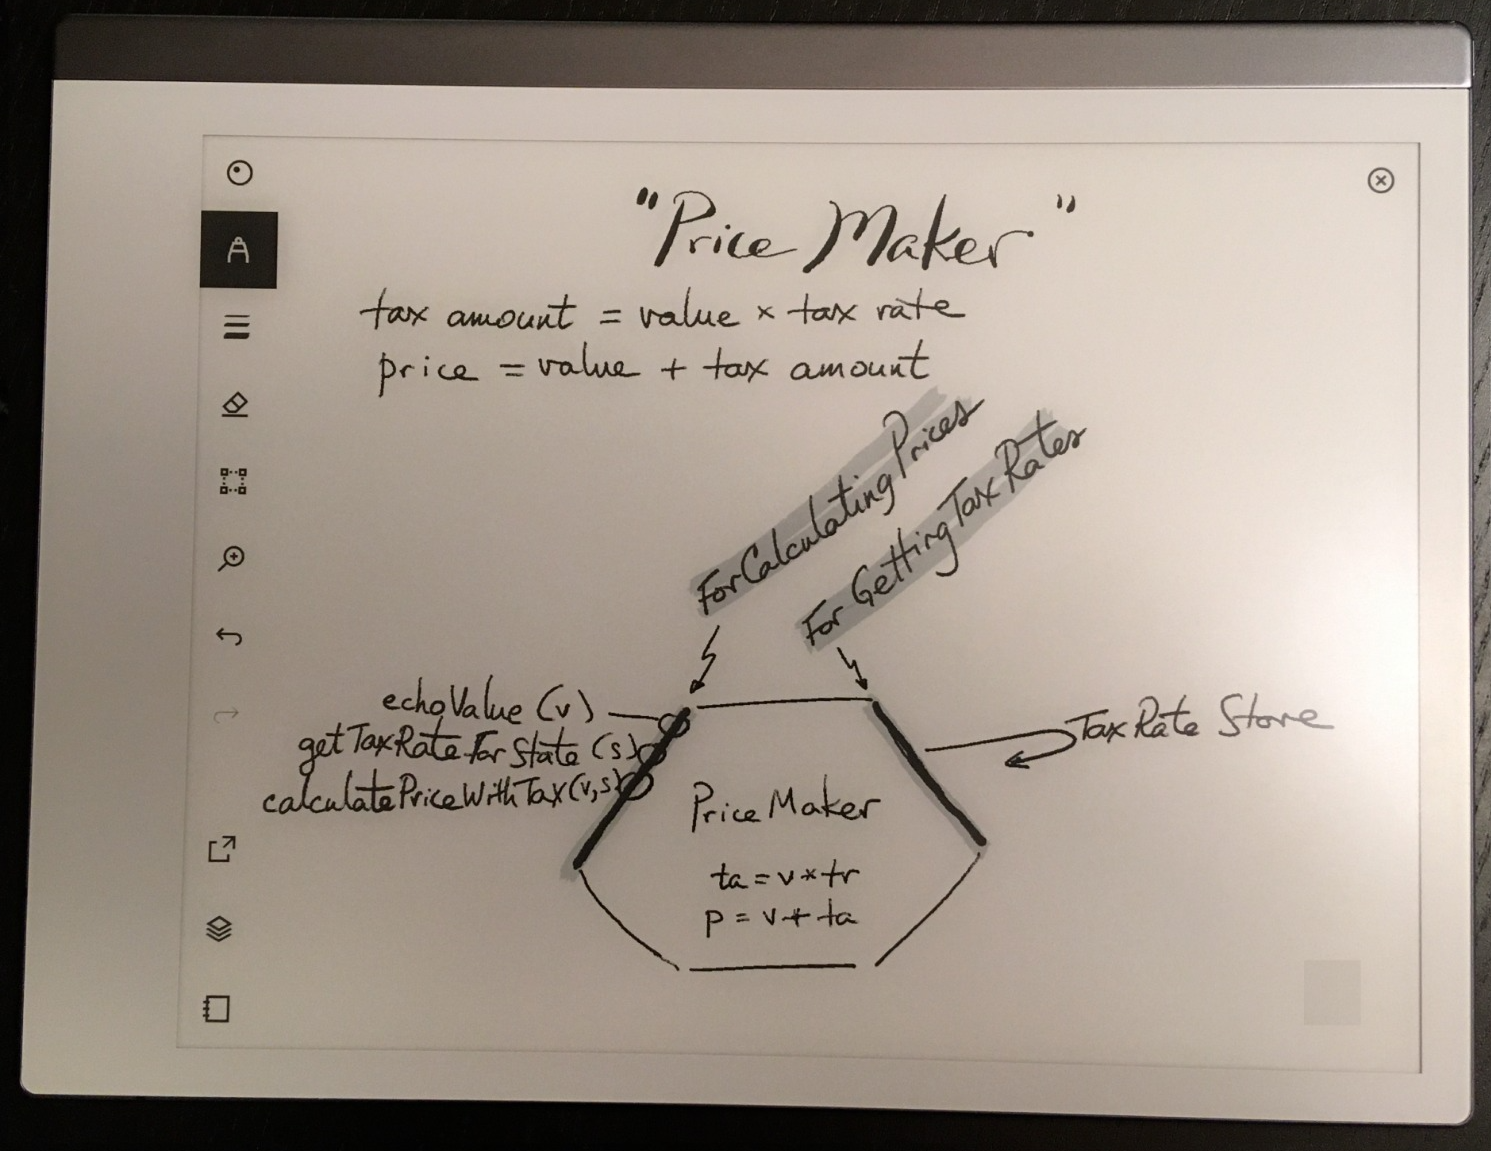 "Price Maker"
tax amount = value × tax rate
price = value + tax amount
ForCalculatingPrices
For GettingTaxRates
echoValue (v)
getTaxRateForState (s)
calculatePriceWithTax(v,s)
TaxRate Store
PriceMaker
ta = v * tr
p = v + ta